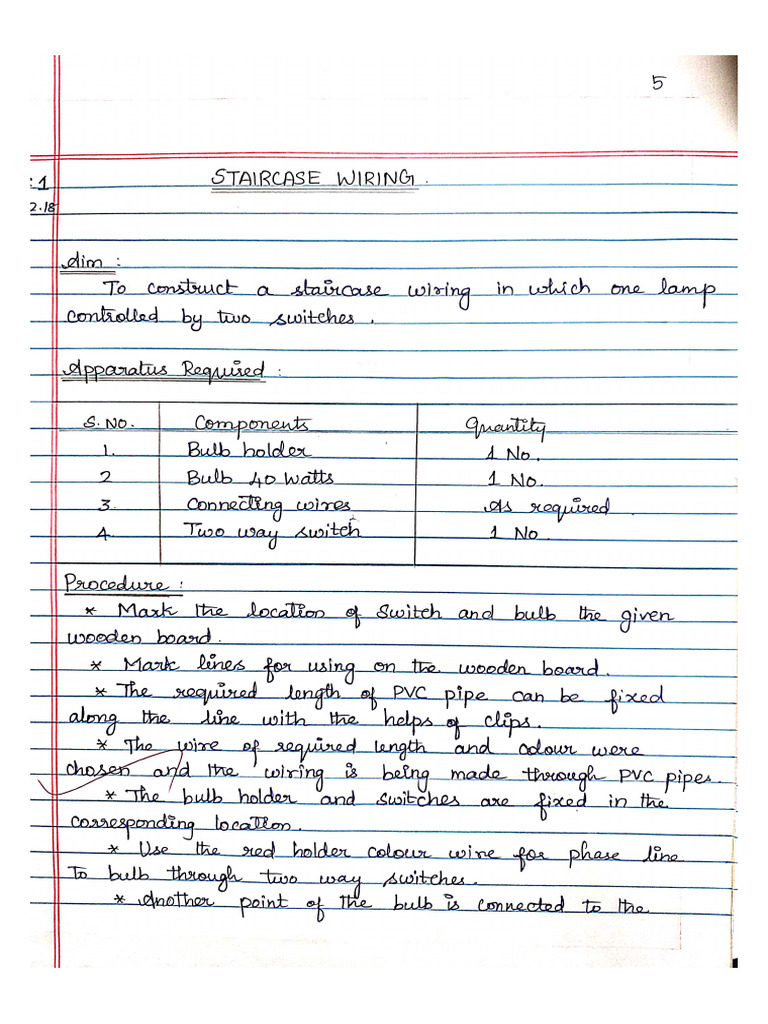 5
STAIRCASE WIRING.
: 1
2.18
Aim :
To construct a staircase wiring in which one lamp
controlled by two switches.
Apparatus Required :
S. No. Components Quantity
1. Bulb holder 1 No.
2 Bulb 40 Watts 1 No.
3. Connecting wires As required.
4. Two way switch 1 No.
Procedure :
* Mark the location of switch and bulb the given
wooden board.
* Mark lines for using on the wooden board.
* The required length of PVC pipe can be fixed
along the line with the helps of clips.
* The wire of required length and colour were
chosen and the wiring is being made through PVC pipes.
* The bulb holder and switches are fixed in the
corresponding location.
* Use the red holder colour wire for phase line
To bulb through two way switches.
* Another point of the bulb is connected to the